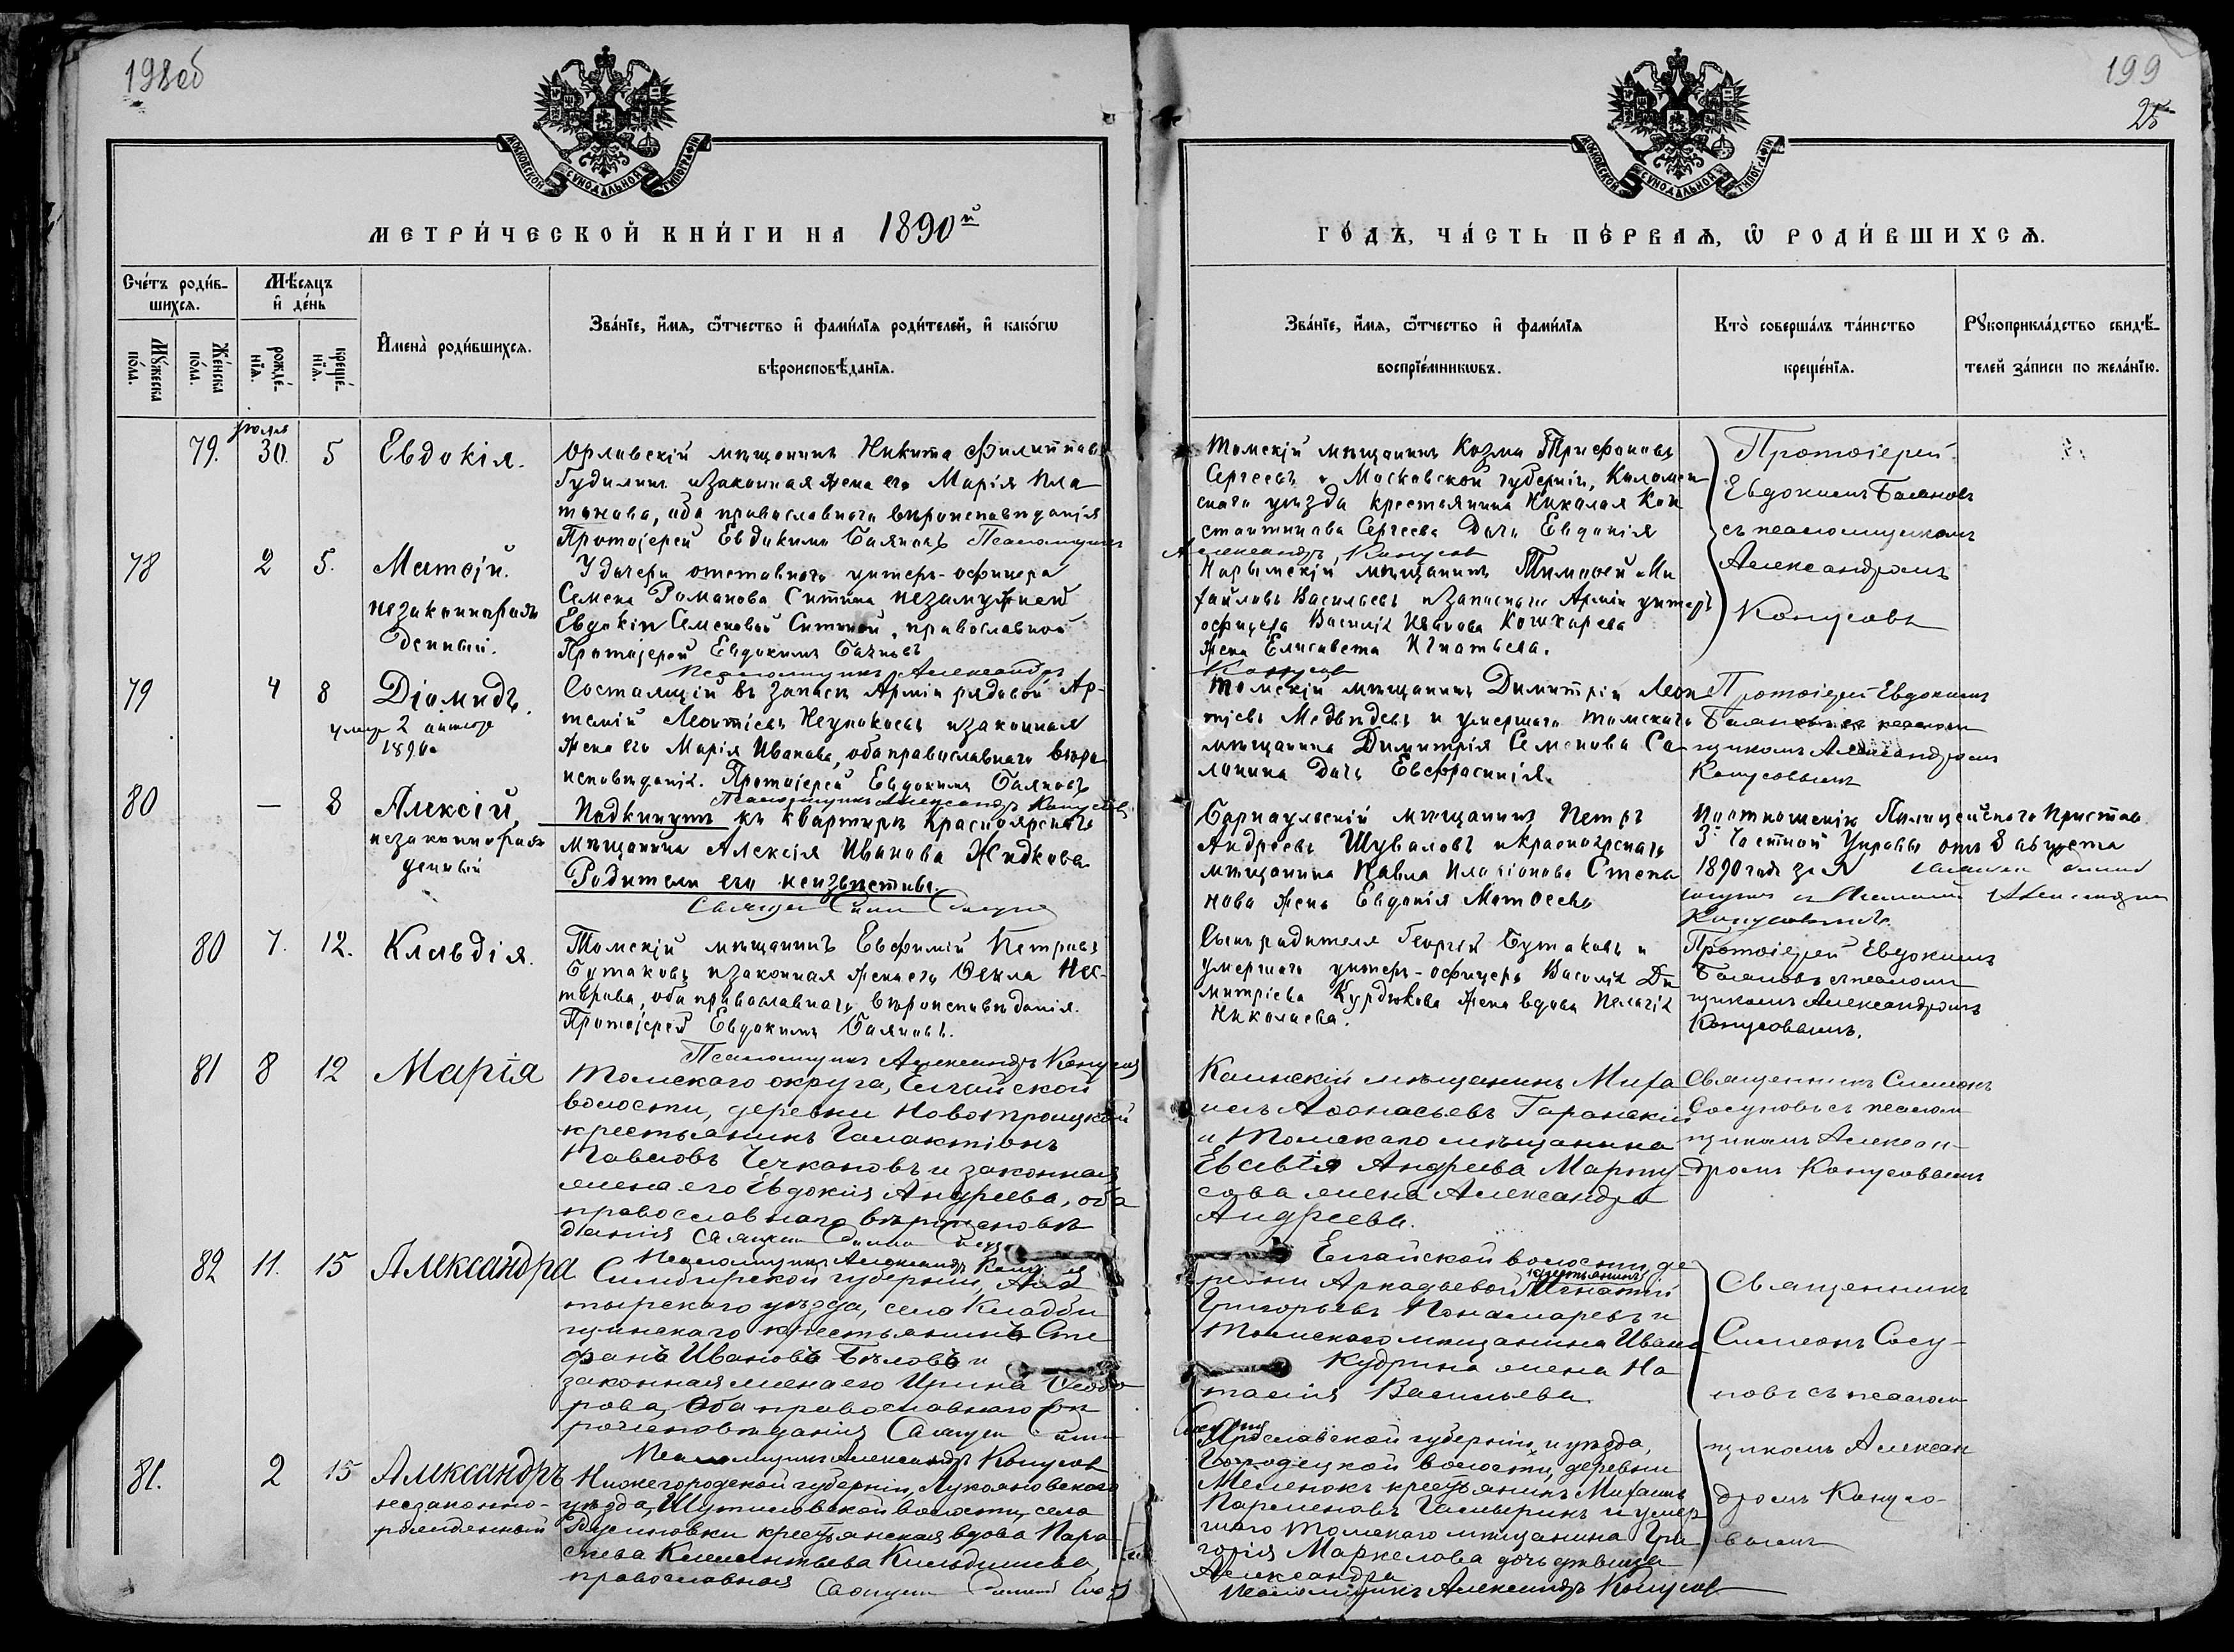 198об
199
25
МОСКОВСКОЙ СѴНОДАЛЬНОЙ ТИПОГРАФІИ
МОСКОВСКОЙ СѴНОДАЛЬНОЙ ТИПОГРАФІИ
МЕТРИ́ЧЕСКОЙ КНИ́ГИ НА 1890й
ГО́ДЪ, ЧА́СТЬ ПЕ́РВАѦ, Ѡ РОДИ́ВШИХСѦ.
Сче́тъ роди́в-
шихсѧ.
Мѣ́сѧцъ
и҆ де́нь
Мꙋ́жеска
по́ла.
Же́нска
по́ла.
рожде́-
нїѧ.
креще́-
нїѧ.
И҆мена̀ роди́вшихсѧ.
Зва́нїе, и҆́мѧ, ѻ҆́тчество и҆ фами́лїѧ роди́телей, и҆ како́гѡ
вѣроисповѣ́данїѧ.
Зва́нїе, и҆́мѧ, ѻ҆́тчество и҆ фами́лїѧ
воспрїе́мникѡвъ.
Кто̀ соверша́лъ та́инство
креще́нїѧ.
Рꙋкоприкла́дство свидѣ́-
телей за́писи по жела́нїю.
79. Іюля 30. 5 Евдокія.
Орловскій мѣщанинъ Никита Филипповъ
Гудилинъ и законная жена его Марія Пла
тонова, оба православнаго вѣроисповѣданія
Протоіерей Евдокимъ Баяновъ Псаломщикъ
Александръ Конусов
Томскій мѣщанинъ Козма Трифановъ
Сергеевъ и Московской губерніи, Коломен
скаго уѣзда крестьянина Николая Кон
стантинова Сергеева дочь Евдокія
Протоіерей
Евдокимъ Баяновъ
съ псаломщикомъ
Александромъ
Конусовъ
78 2 5. Матѳій.
незаконнорож
денный.
У дочери отставного унтеръ-офицера
Семена Романова Ситина незамужней
Евдокіи Семеновой Ситиной, православной
Протоіерей Евдокимъ Баяновъ
Псаломщикъ Александръ
Конусов
Нарымскій мѣщанинъ Тимоѳей Ми
хайловъ Васильевъ и запаснаго Арміи унтеръ
офицера Василія Иванова Кошкарева
жена Елисавета Игнатьева.
79 4 8 Діомидъ.
умер 2 октяб
1890г
Состоящій въ запасѣ Арміи рядовой Ар-
темій Леонтіевъ Неупокоевъ и законная
жена его Марія Иванова, оба православнаго вѣро
исповѣданія. Протоіерей Евдокимъ Баяновъ
Псаломщикъ Александръ Конусовъ
Томскій мѣщанинъ Димитрій Леон
тіевъ Медвѣдевъ и умершаго томскаго
мѣщанина Димитрія Семенова Са
лонина дочь Евфросинія.
Протоіерей Евдокимъ
Баяновъ съ псалом
щикомъ Александромъ
Конусовымъ
80 — 8 Алексій,
незаконнорож
денный
Подкинутъ къ квартирѣ Красноярскаго
мѣщанина Алексія Иванова Жидкова.
Родители его неизвѣстны.
Барнаульскій мѣщанинъ Петръ
Андреевъ Шуваловъ и красноярскаго
мѣщанина Павла Иларіонова Степа
нова жена Евдокія Матѳеева
По отношенію Полицейскаго Пристава
3й Частной Управы отъ 8 августа
1890 года за №
Конусовымъ
80 7. 12. Клавдія.
Томскій мѣщанинъ Евфимій Петровъ
Бутаковъ и законная жена его Ѳекла Нес-
терова, оба православнаго вѣроисповѣданія.
Протоіерей Евдокимъ Баяновъ.
Псаломщикъ Александръ Конусов
Сынъ родителя Георгій Бутаковъ и
умершаго унтеръ-офицера Василія Ди
митріева Курдюкова жена вдова Пелагія
Николаева.
Протоіерей Евдокимъ
Баяновъ съ псалом
щикомъ Александромъ
Конусовымъ.
81 8 12 Марія
Томскаго округа, Елгайской
волости, деревни Новотроицкой
крестьянинъ Галактіонъ
Павловъ Чечкановъ и законная
жена его Евдокія Андреева, оба
православнаго вѣроисповѣ
данія
Псаломщикъ Александръ
Каинскій мѣщанинъ Миха
илъ Аѳонасьевъ Гаранскій
и Томскаго мѣщанина
Евсевія Андреева Марту
сова жена Александра
Андреева.
Священникъ Симеонъ
Сосуновъ съ псалом
щикомъ Алексан-
дромъ Конусовымъ
82 11. 15 Александра
Симбирской губерніи, Ала
тырскаго уѣзда, села Кладби
щинскаго крестьянинъ Сте
фанъ Ивановъ Бѣловъ и
законная жена его Ирина Ѳеодо
рова, оба православнаго вѣ
роисповѣданія
Псаломщикъ Александръ Конусов
Елгайской волости, де
ревни Аркадьевой крестьянинъ Игнатій
Григорьевъ Понамаревъ и
Томскаго мѣщанина Ивана
Кудрина жена На
талія Васильева
Священникъ
Симеонъ Сосу-
новъ съ псалом
щикомъ Алексан
дромъ Конусо-
вымъ
81. 2 15 Александръ
незаконно-
рожденный
Нижегородской губерніи, Лукояновскаго
уѣзда, Шутиловской волости, села
Русиновки крестьянская вдова Пара
скева Климентьева Кильдишева,
православная
Ярославской губерніи, и уѣзда,
Городецкой волости, деревни
Меленокъ крестьянинъ Михаилъ
Парменовъ Галыринъ и умер
шаго томскаго мѣщанина Гри
горія Маркелова дочь дѣвица
Александра
Псаломщикъ Александръ Конусов